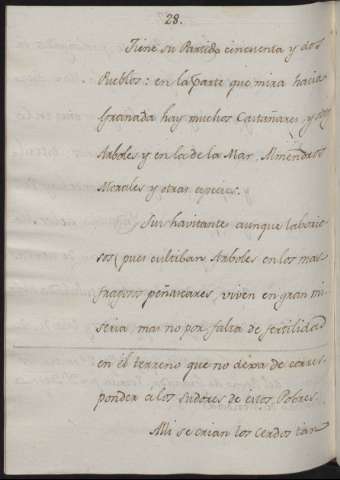 28.
Tiene su Partido cincuenta y dos
Pueblos: en la parte que mira hacia
Granada hay muchos Castañares, y
Arboles y en la de la Mar, Almendros
Morales y otras especies.
Sus havitantes aunque laborio-
sos (pues cultiban Arboles en los mas
fragosos peñascares, viven en gran mi-
seria, mas no por falta de fertilidad
en el terreno que no dexa de corres-
ponder a los sudores de estos Pobres.
Alli se crian los Cerdos tan